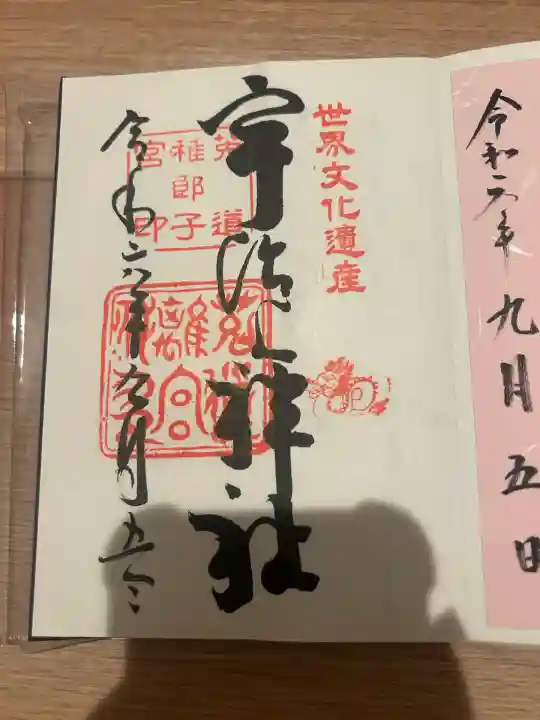 令和六年九月五日
世界文化遺産
宇治上神社
菟道
稚郎子
宮印
離宮
令和六年九月五日